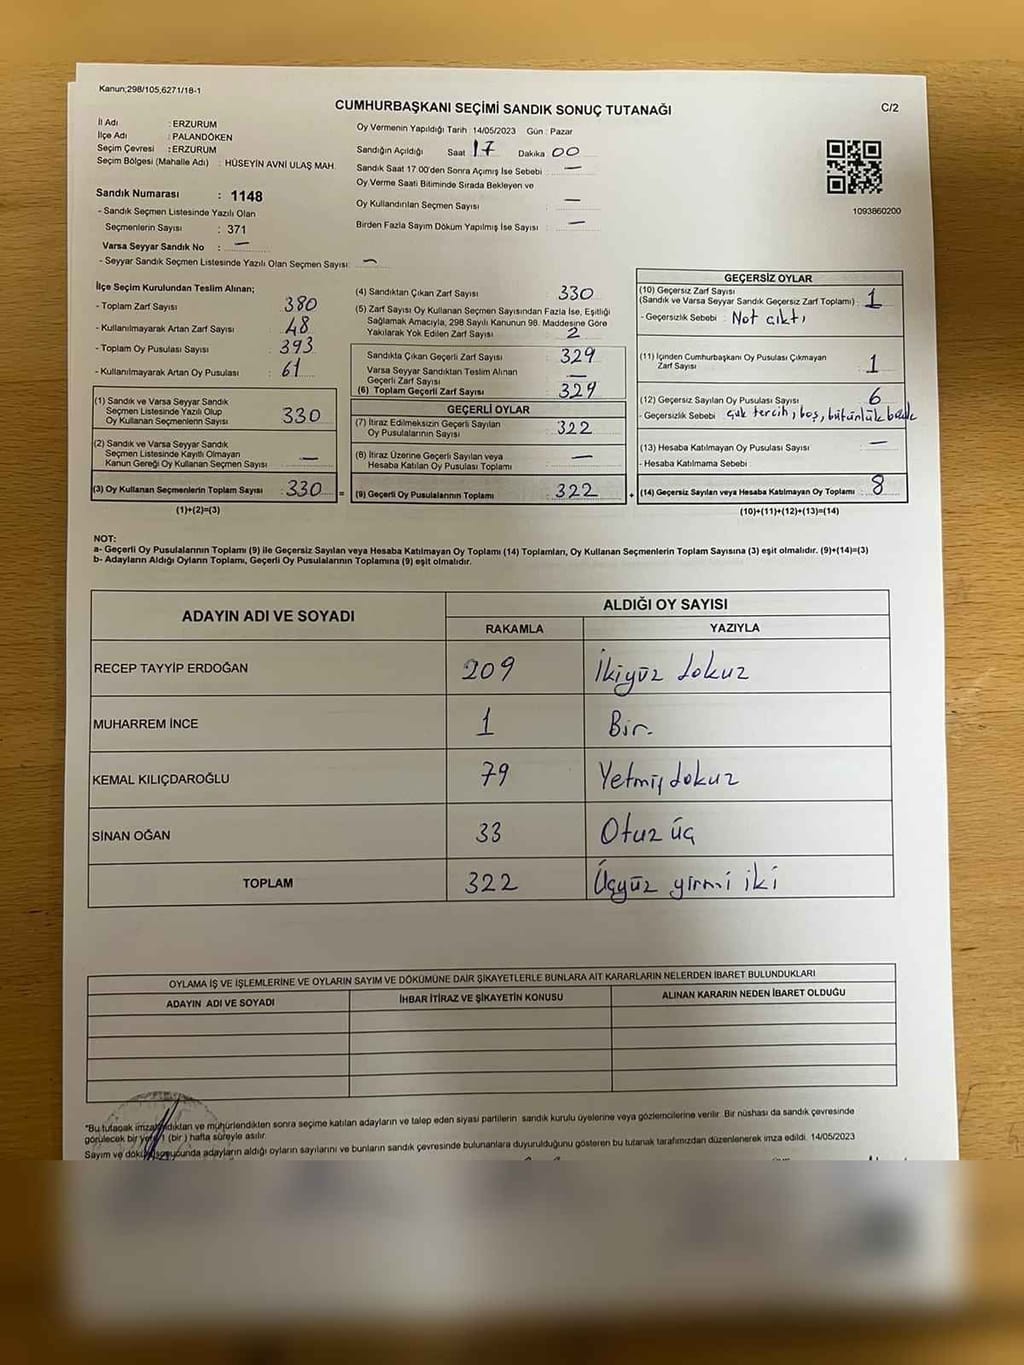 Kanun;298/105,6271/18-1
CUMHURBAŞKANI SEÇİMİ SANDIK SONUÇ TUTANAĞI
C/2
İl Adı : ERZURUM
İlçe Adı : PALANDÖKEN
Seçim Çevresi : ERZURUM
Seçim Bölgesi (Mahalle Adı) : HÜSEYİN AVNİ ULAŞ MAH.
Sandık Numarası : 1148
- Sandık Seçmen Listesinde Yazılı Olan
Seçmenlerin Sayısı : 371
Varsa Seyyar Sandık No : —
- Seyyar Sandık Seçmen Listesinde Yazılı Olan Seçmen Sayısı: —
Oy Vermenin Yapıldığı Tarih 14/05/2023 Gün : Pazar
Sandığın Açıldığı Saat 17 Dakika 00
Sandık Saat 17:00'den Sonra Açımış İse Sebebi : —
Oy Verme Saati Bitiminde Sırada Bekleyen ve
Oy Kullandırılan Seçmen Sayısı : —
Birden Fazla Sayım Döküm Yapılmış İse Sayısı : —
1093860200
İlçe Seçim Kurulundan Teslim Alınan;
- Toplam Zarf Sayısı : 380
- Kullanılmayarak Artan Zarf Sayısı : 48
- Toplam Oy Pusulası Sayısı : 393
- Kullanılmayarak Artan Oy Pusulası : 61
(1) Sandık ve Varsa Seyyar Sandık
Seçmen Listesinde Yazılı Olup
Oy Kullanan Seçmenlerin Sayısı : 330
(2) Sandık ve Varsa Seyyar Sandık
Seçmen Listesinde Kayıtlı Olmayan
Kanun Gereği Oy Kullanan Seçmen Sayısı : —
(3) Oy Kullanan Seçmenlerin Toplam Sayısı : 330 =
(1)+(2)=(3)
(4) Sandıktan Çıkan Zarf Sayısı : 330
(5) Zarf Sayısı Oy Kullanan Seçmen Sayısından Fazla İse, Eşitliği
Sağlamak Amacıyla, 298 Sayılı Kanunun 98. Maddesine Göre
Yakılarak Yok Edilen Zarf Sayısı : 2
Sandıkta Çıkan Geçerli Zarf Sayısı : 329
Varsa Seyyar Sandıktan Teslim Alınan
Geçerli Zarf Sayısı : —
(6) Toplam Geçerli Zarf Sayısı : 329
GEÇERLİ OYLAR
(7) İtiraz Edilmeksizin Geçerli Sayılan
Oy Pusulalarının Sayısı : 322
(8) İtiraz Üzerine Geçerli Sayılan veya
Hesaba Katılan Oy Pusulası Toplamı : —
(9) Geçerli Oy Pusulalarının Toplamı : 322 +
GEÇERSİZ OYLAR
(10) Geçersiz Zarf Sayısı
(Sandık ve Varsa Seyyar Sandık Geçersiz Zarf Toplamı) : 1
- Geçersizlik Sebebi : Not çıktı,
(11) İçinden Cumhurbaşkanı Oy Pusulası Çıkmayan
Zarf Sayısı : 1
(12) Geçersiz Sayılan Oy Pusulası Sayısı : 6
- Geçersizlik Sebebi : çok tercih, boş, bütünlük bozuk
(13) Hesaba Katılmayan Oy Pusulası Sayısı : —
- Hesaba Katılmama Sebebi :
(14) Geçersiz Sayılan veya Hesaba Katılmayan Oy Toplamı : 8
(10)+(11)+(12)+(13)=(14)
NOT:
a- Geçerli Oy Pusulalarının Toplamı (9) ile Geçersiz Sayılan veya Hesaba Katılmayan Oy Toplamı (14) Toplamları, Oy Kullanan Seçmenlerin Toplam Sayısına (3) eşit olmalıdır. (9)+(14)=(3)
b- Adayların Aldığı Oyların Toplamı, Geçerli Oy Pusulalarının Toplamına (9) eşit olmalıdır.
ADAYIN ADI VE SOYADI
ALDIĞI OY SAYISI
RAKAMLA YAZIYLA
RECEP TAYYİP ERDOĞAN 209 İkiyüz dokuz
MUHARREM İNCE 1 Bir.
KEMAL KILIÇDAROĞLU 79 Yetmiş dokuz
SİNAN OĞAN 33 Otuz üç
TOPLAM 322 Üçyüz yirmi iki
OYLAMA İŞ VE İŞLEMLERİNE VE OYLARIN SAYIM VE DÖKÜMÜNE DAİR ŞİKAYETLERLE BUNLARA AİT KARARLARIN NELERDEN İBARET BULUNDUKLARI
ADAYIN ADI VE SOYADI İHBAR İTİRAZ VE ŞİKAYETİN KONUSU ALINAN KARARIN NEDEN İBARET OLDUĞU
*Bu tutanak imzalandıktan ve mühürlendikten sonra seçime katılan adayların ve talep eden siyasi partilerin sandık kurulu üyelerine veya gözlemcilerine verilir. Bir nüshası da sandık çevresinde
görülecek bir yere 1 (bir) hafta süreyle asılır.
Sayım ve döküm sonucunda adayların aldığı oyların sayılarını ve bunların sandık çevresinde bulunanlara duyurulduğunu gösteren bu tutanak tarafımızdan düzenlenerek imza edildi. 14/05/2023